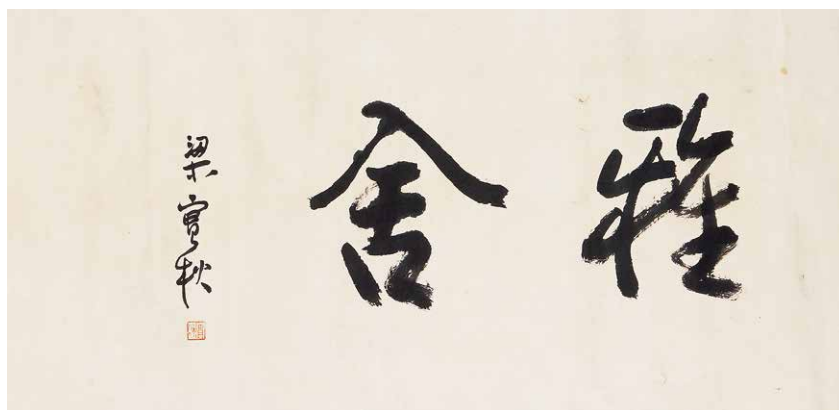 雅舍
梁實秋